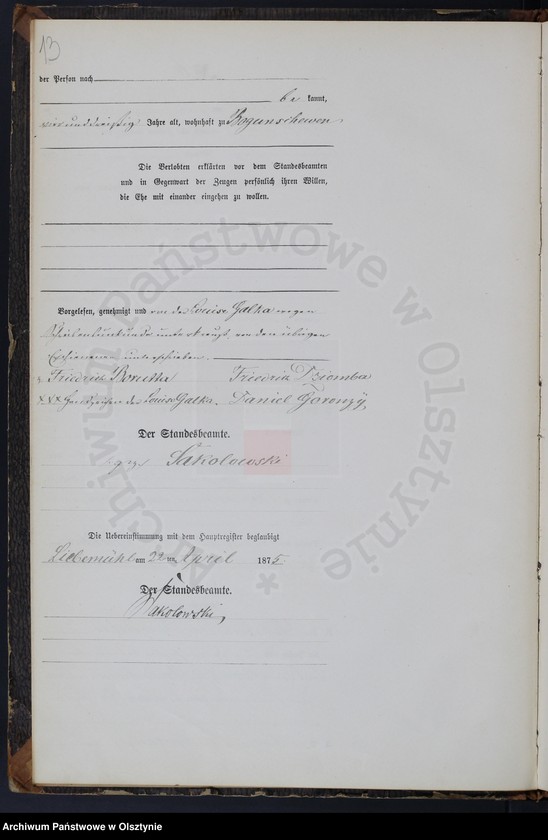 13
der Person nach
be kannt,
vierunddreißig Jahre alt, wohnhaft zu Bogunschewen
Die Verlobten erklärten vor dem Standesbeamten
und in Gegenwart der Zeugen persönlich ihren Willen,
die Ehe mit einander eingehen zu wollen.
Vorgelesen, genehmigt und von der Louise Galka wegen
Schreibensunkunde unterkreuzt, von den übrigen
Erschienenen unterschrieben.
Friedrich Borutta Friedrich Dziomba
xxx Handzeichen der Louise Galka. Daniel Goronzÿ,
Der Standesbeamte.
gez. Sakolowski
Die Uebereinstimmung mit dem Hauptregister beglaubigt
Liebemühl am 22 ten April 1875.
Der Standesbeamte.
Sakolowski,
Archiwum Państwowe w Olsztynie
Archiwum Państwowe w Olsztynie